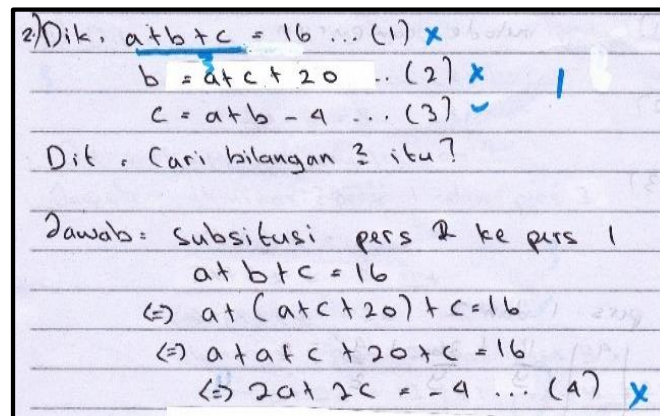 2.) Dik. a+b+c = 16 ... (1) x
3
b = a+c + 20 .. (2) x
1
c = a+b - 4 ... (3) ✓
Dit. Cari bilangan 3 itu?
Jawab = Subsitusi pers 2 ke pers 1
a+b+c = 16
(=) a+(a+c+20)+c=16
(=) a+a+c+20+c = 16
(=) 2a+2c = -4 ... (4) x